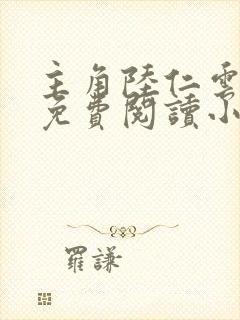 主角陸仁雲
免費閱讀小
羅謙